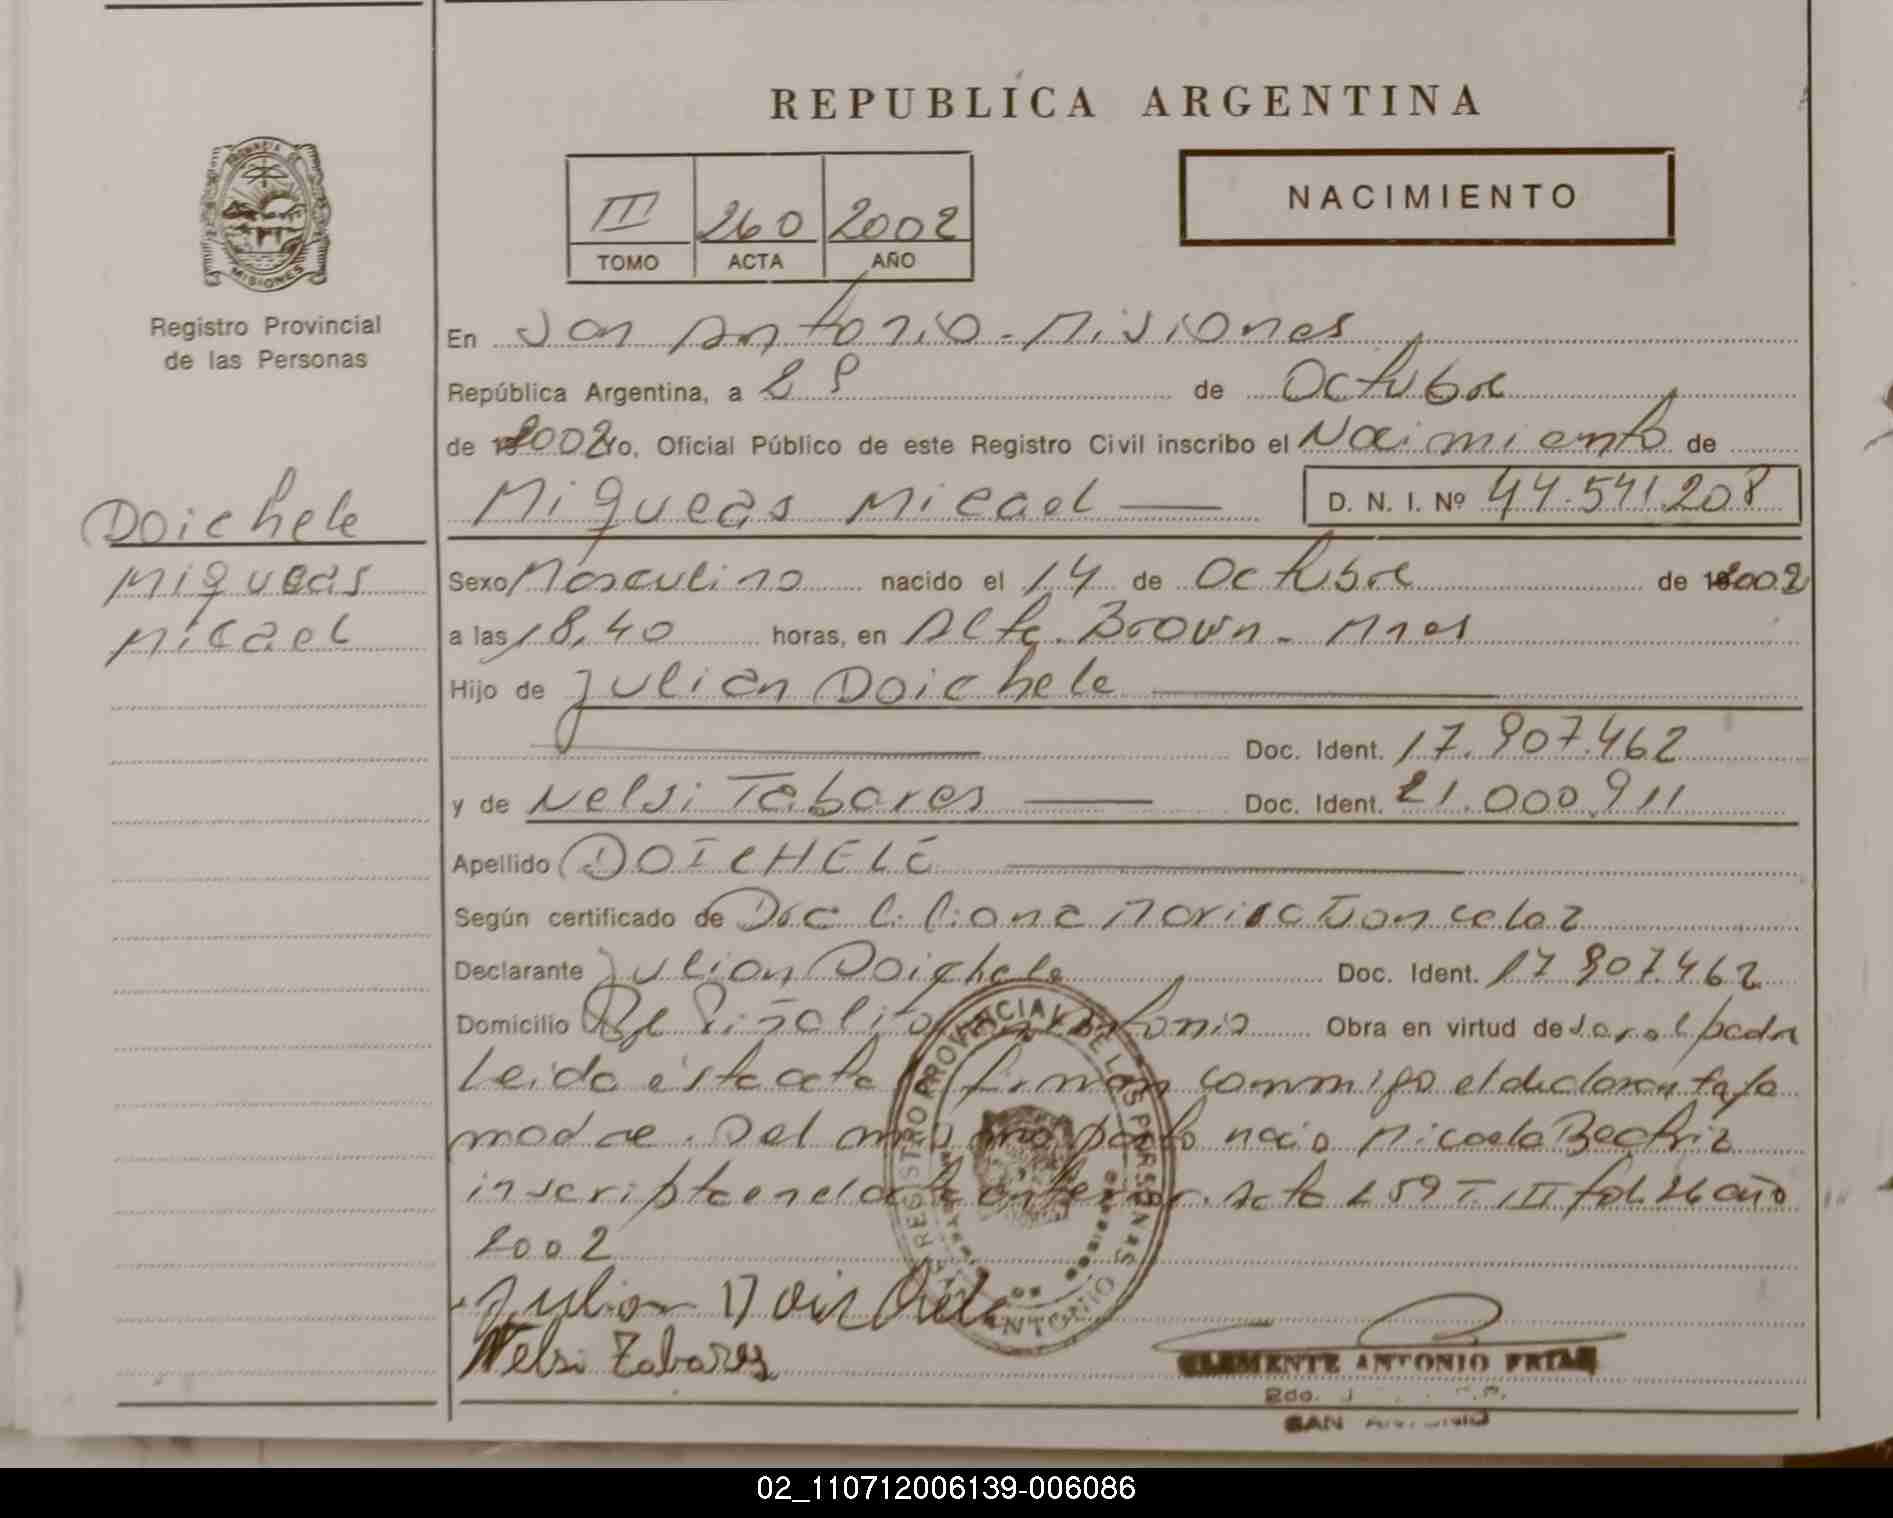 REPUBLICA ARGENTINA
NACIMIENTO
III 260 2002
TOMO ACTA AÑO
PROVINCIA DE MISIONES
Registro Provincial
de las Personas
En San Antonio - Misiones
República Argentina, a de Octubre
de 2002 Yo, Oficial Público de este Registro Civil inscribo el Nacimiento de
Miqueas Micael D. N. I. Nº 44.541.208
Doichele
Miqueas
Micael
Sexo Masculino nacido el 14 de Octubre de 2002
a las 18,40 horas, en Alte. Brown - Mnes
Hijo de Julian Doichele
Doc. Ident. 17.907.462
y de Nelsi Tabares Doc. Ident. 21.000.911
Apellido DOICHELE
Según certificado de Dra Liliana Gonzalez
Declarante Julian Doichele Doc. Ident. 17 907.462
Domicilio Piñalito Antonio Obra en virtud de padre
Leida esta acta firman conmigo el declarante y la
madre. Del mismo parto nacio Micaela Beatriz
inscripta en el acta anterior. Acta 259 T. III fol. 26 año
2002
Julian Doichele
Nelsi Tabares
REGISTRO PROVINCIAL DE LAS PERSONAS
MISIONES
SAN ANTONIO
CLEMENTE ANTONIO FRIAS
SAN ANTONIO
02_110712006139-006086